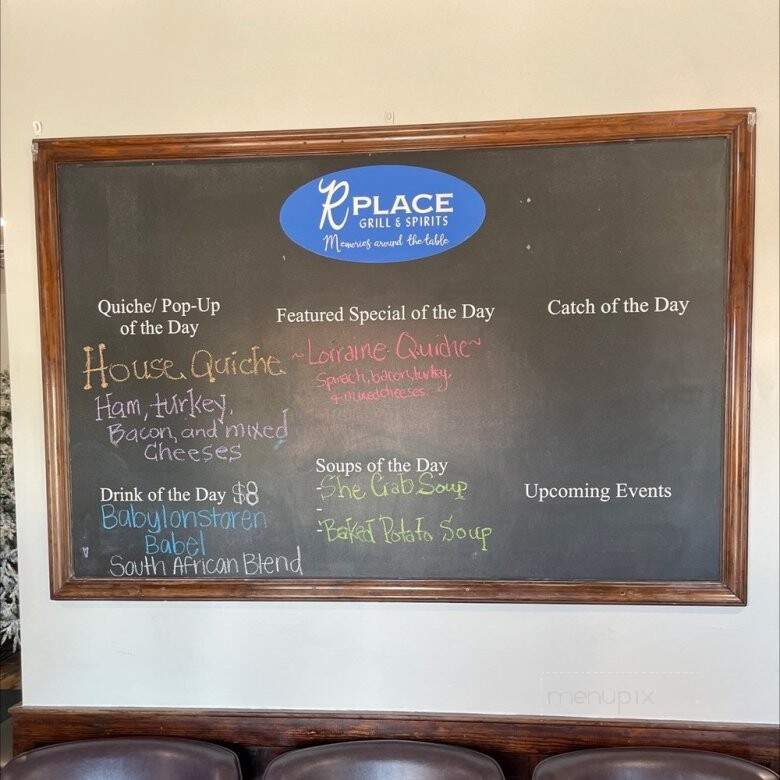 R PLACE
GRILL & SPIRITS
Memories around the table
Quiche/ Pop-Up
of the Day
House Quiche
Ham, turkey,
Bacon, and mixed
Cheeses
Featured Special of the Day
~Lorraine Quiche~
Spinach, bacon, turkey,
+ mixed cheeses
Catch of the Day
Drink of the Day $8
Babylonstoren
Babel
South African Blend
Soups of the Day
-She Crab Soup
-
-Baked Potato Soup
Upcoming Events
menupix